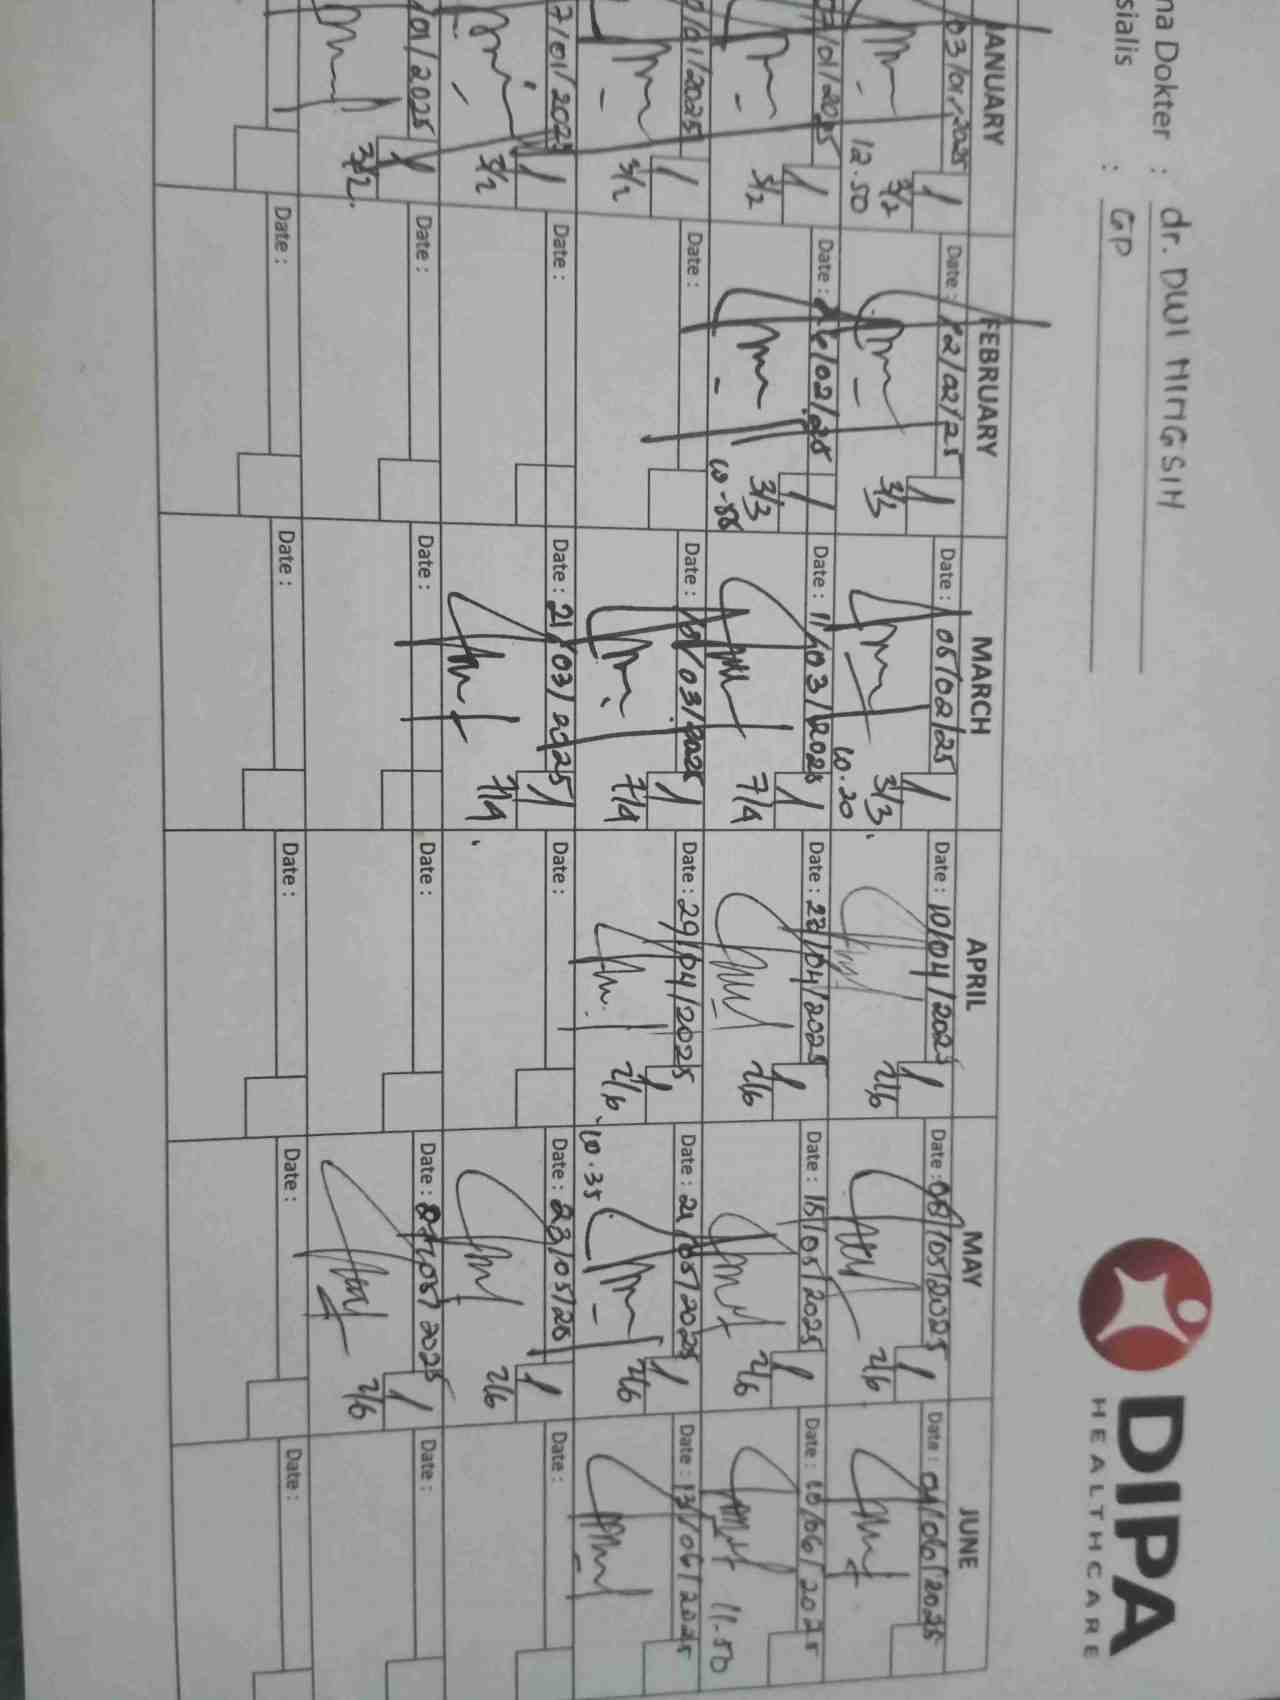 na Dokter : dr. DWI NINGSIH
sialis : GP
DIPA
HEALTHCARE
JANUARY
FEBRUARY
MARCH
APRIL
MAY
JUNE
03/01/2025
Date : 12/02/25
Date : 05/02/25
Date : 10/04/2025
Date : 08/05/2025
Date : 04/06/2025
12.50
3/2
3/3
3/3
10.20
2/6
2/6
/01/2025
Date : 26/02/25
Date : 11/03/2025
Date : 28/04/2025
Date : 15/05/2025
Date : 10/06/2025
3/2
3/3
7/4
2/6
2/6
11.50
/01/2025
Date :
Date : /03/2025
Date : 29/04/2025
Date : 21/05/2025
Date : 13/06/2025
3/2
7/4
2/6
10.35
2/6
7/01/2025
Date :
Date : 21/03/2025
Date :
Date : 23/05/25
Date :
3/2
7/4
2/6
/01/2025
Date :
Date :
Date :
Date : 27/05/2025
Date :
3/2
2/6
Date :
Date :
Date :
Date :
Date :